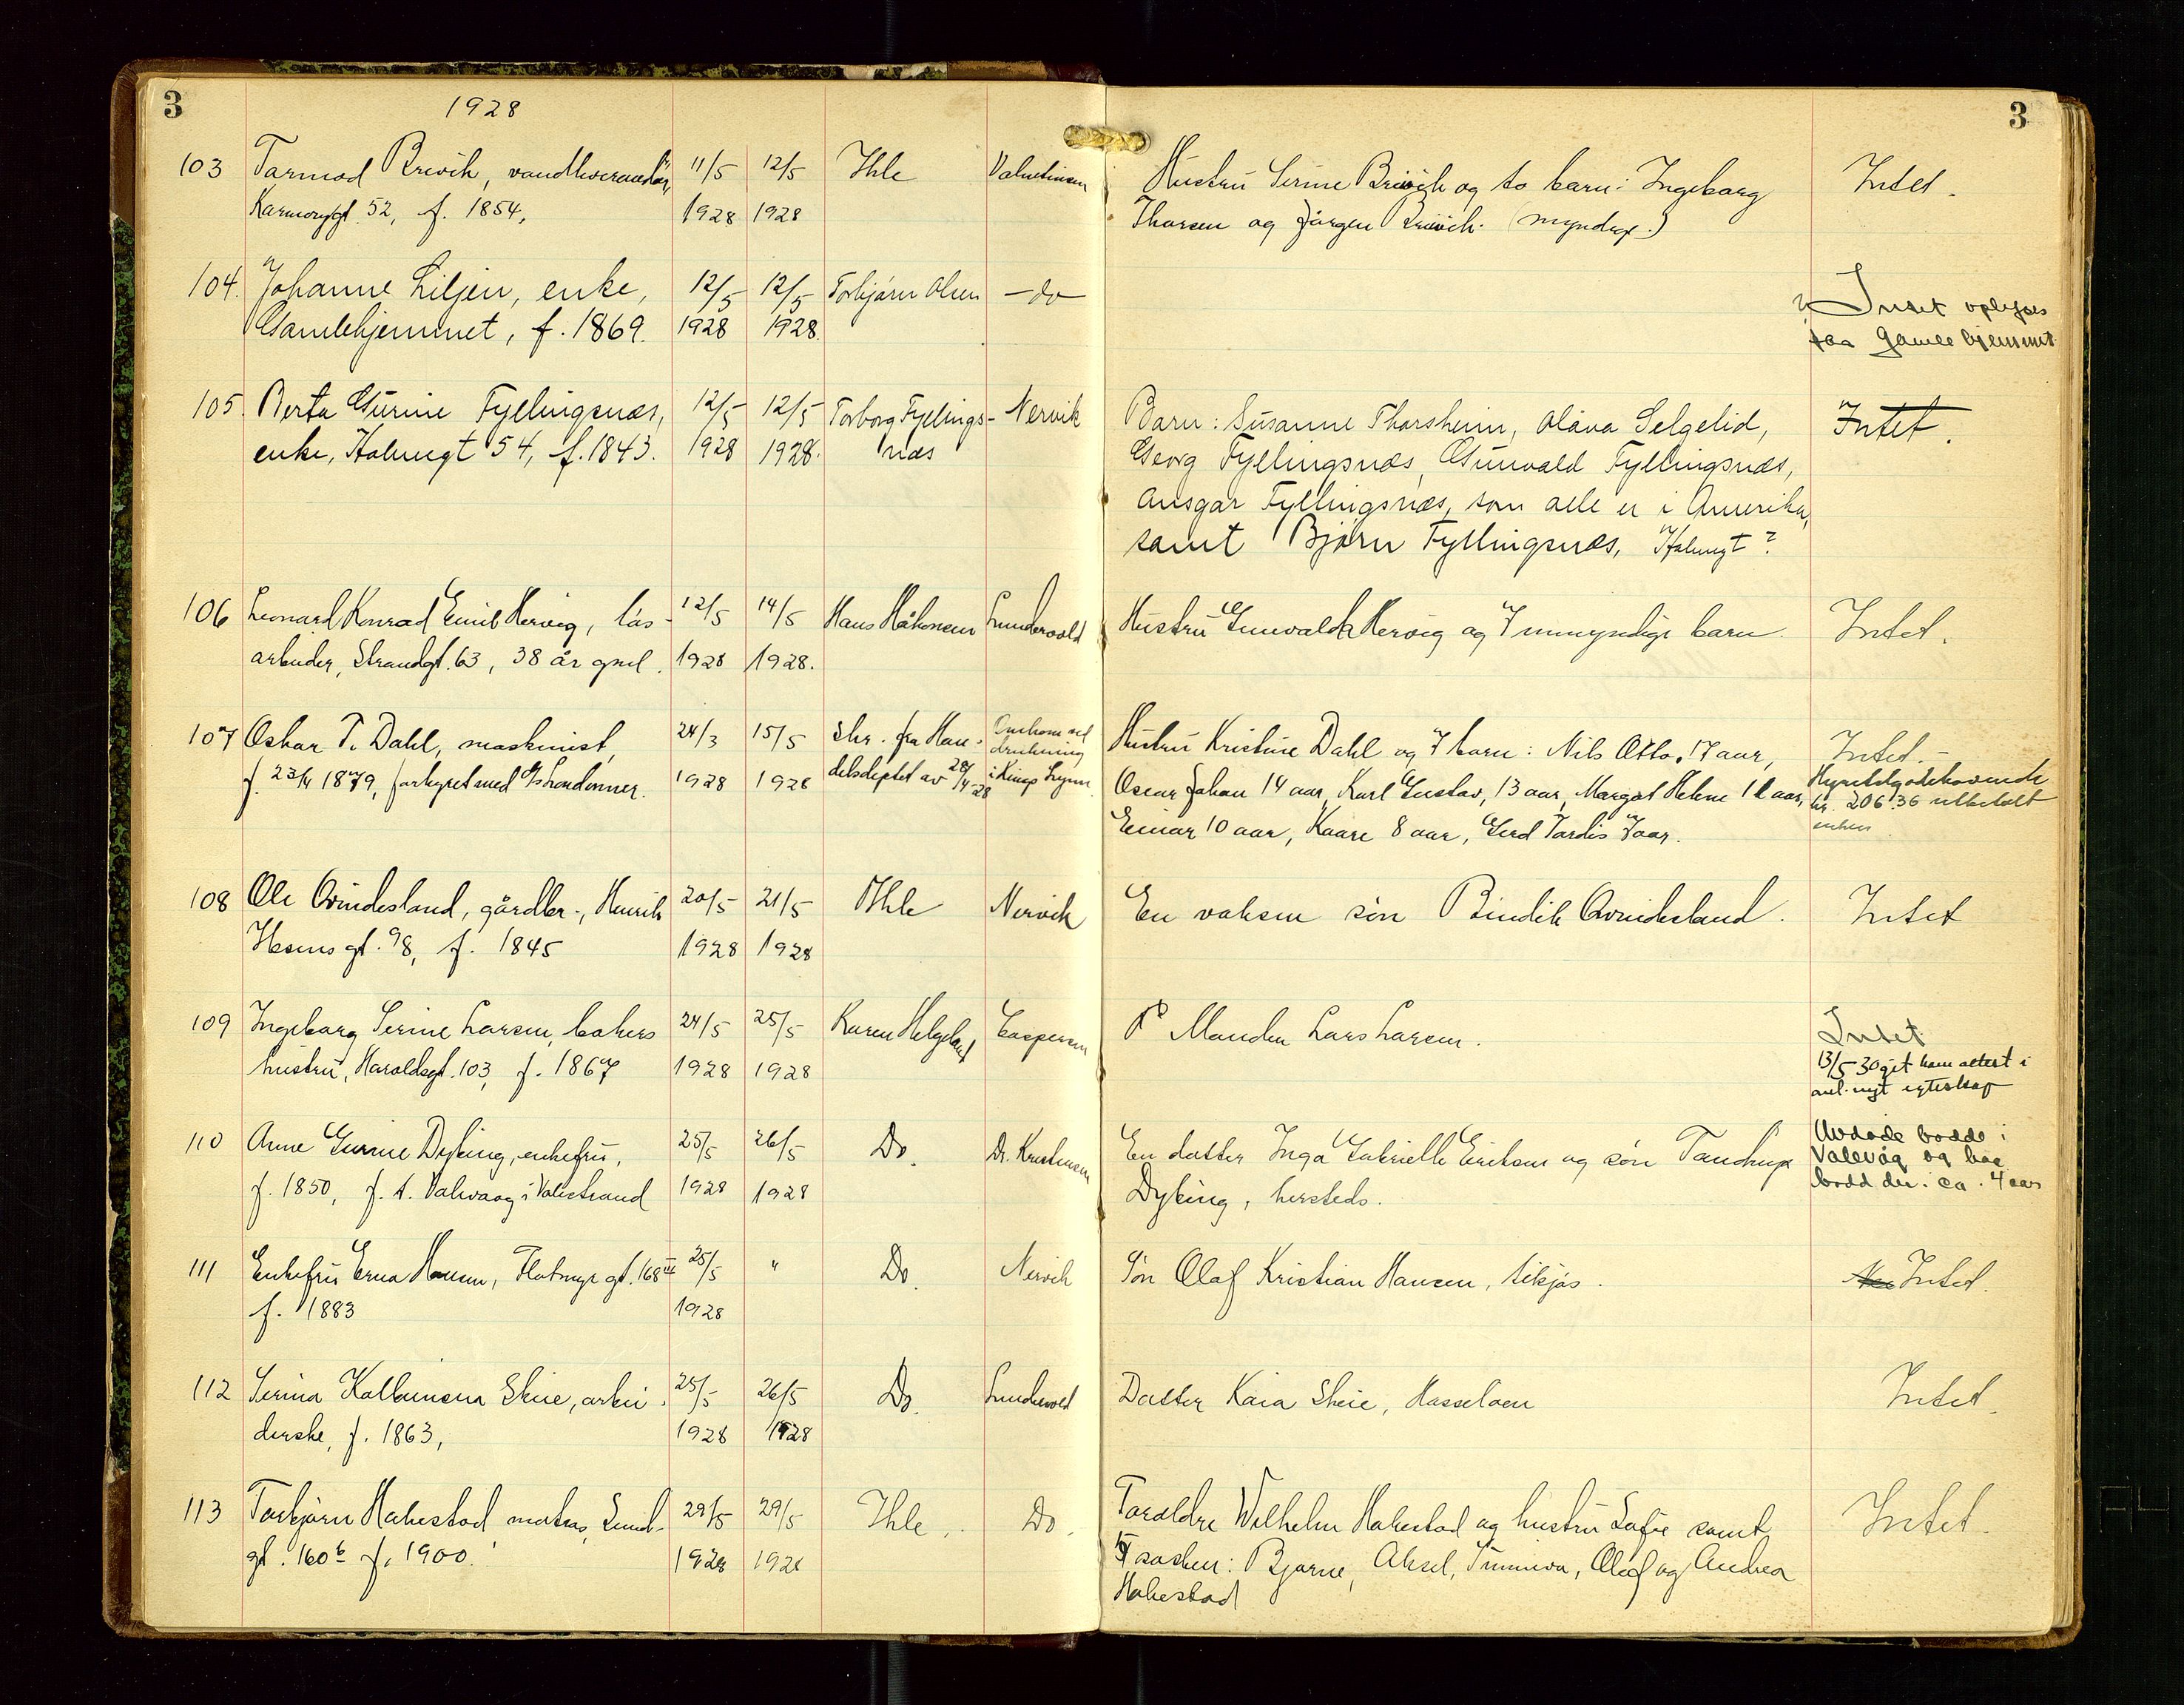 3
1928
3
103 Tarmod Brevik, 11/5 12/5 Ihle Valentinsen Hustru Serine Brevik og to barn: Ingeborg Intet.
Karmøygt. 52, f. 1854, 1928 1928 Thorsen og Jørgen Brevik. (myndige.)
104. Johanne Liljen, enke, 12/5 12/5 Torbjørn Olsen - do - Intet oplyses
Gamlehjemmet, f. 1869. 1928 1928. fra Gamlehjemmet
105. Berta Gurine Fyllingsnæs, 12/5 12/5 Torborg Fyllings- Nervik Barn: Susanne Thorsheim, Olava Selgelid, Intet.
enke, Holmegt 54, f. 1843. 1928 1928. næs Georg Fyllingsnæs, Gunvald Fyllingsnæs,
Ansgar Fyllingsnæs, som alle er i Amerika,
samt Bjørn Fyllingsnæs, Holmegt?
106 Leonard Konrad Emil Hervig, løs- 12/5 14/5 Hans Håkonsen Lundevold Hustru Gunvalda Hervig og 7 umyndige barn. Intet.
arbeider, Strandgt. 63, 38 år gml. 1928 1928.
107 Oskar T. Dahl, maskinist, 24/3 15/5 Skr. fra Han- Omkom ved Hustru Kristine Dahl og 7 barn: Nils Otto, 17 aar, Intet.-
f. 23/4 1879, forhyret med D/S Londonner. 1928 1928 delsdeptet av 28/4-28 drukning i Kings Lynn Oscar Johan 14 aar, Karl Gustav, 13 aar, Margot Helene 12 aar, Hyretilgodehavende
Einar 10 aar, Kaare 8 aar, Gerd Tordis 7 aar. kr. 206.36 utbetalt
enken
108 Ole Qvindesland, gårdbr., Henrik 20/5 21/5 Ihle Nervik En voksen søn Bendik Qvindesland. Intet
Ibsens gt. 98, f. 1845 1928 1928
109 Ingeborg Serine Larsen, bakers 24/5 25/5 Karen Helgeland Caspersen Manden Lars Larsen. Intet
hustru, Haraldsgt. 103, f. 1867 1928 1928 13/5 30 git ham attest i
anl. nyt egteskap
110 Anne Gurine Dyking, enkefru, 25/5 26/5 Do. Dr. Kristensen En datter Inga Gabrielle Eriksen og søn Tandrup Avdøde bodde i
f. 1850, f. t. Valevaag i Valestrand 1928 1928 Dyking, hersteds. Valevåg og har
bodd der. ca. 4 aar
111 Enkefru Erna Hansen, Flotmyr gt. 168 III 25/5 " Do. Nervik Søn Olaf Kristian Hansen, tilsjøs. Intet.
f. 1883 1928
112 Serina Kolbeinsena Skeie, arbei- 25/5 26/5 Do. Lundevold Datter Kaia Skeie, Hasseløen Intet.
derske, f. 1863, 1928 1928
113 Torbjørn Hakestad matros, Sund- 29/5 29/5 Ihle. Do. Foreldre Wilhelm Hakestad og hustru Sofie samt Intet.
gt. 160 b f. 1900. 1928 1928 5 søsken: Bjarne, Aksel, Sunniva, Olaf og Andrea
Hakestad